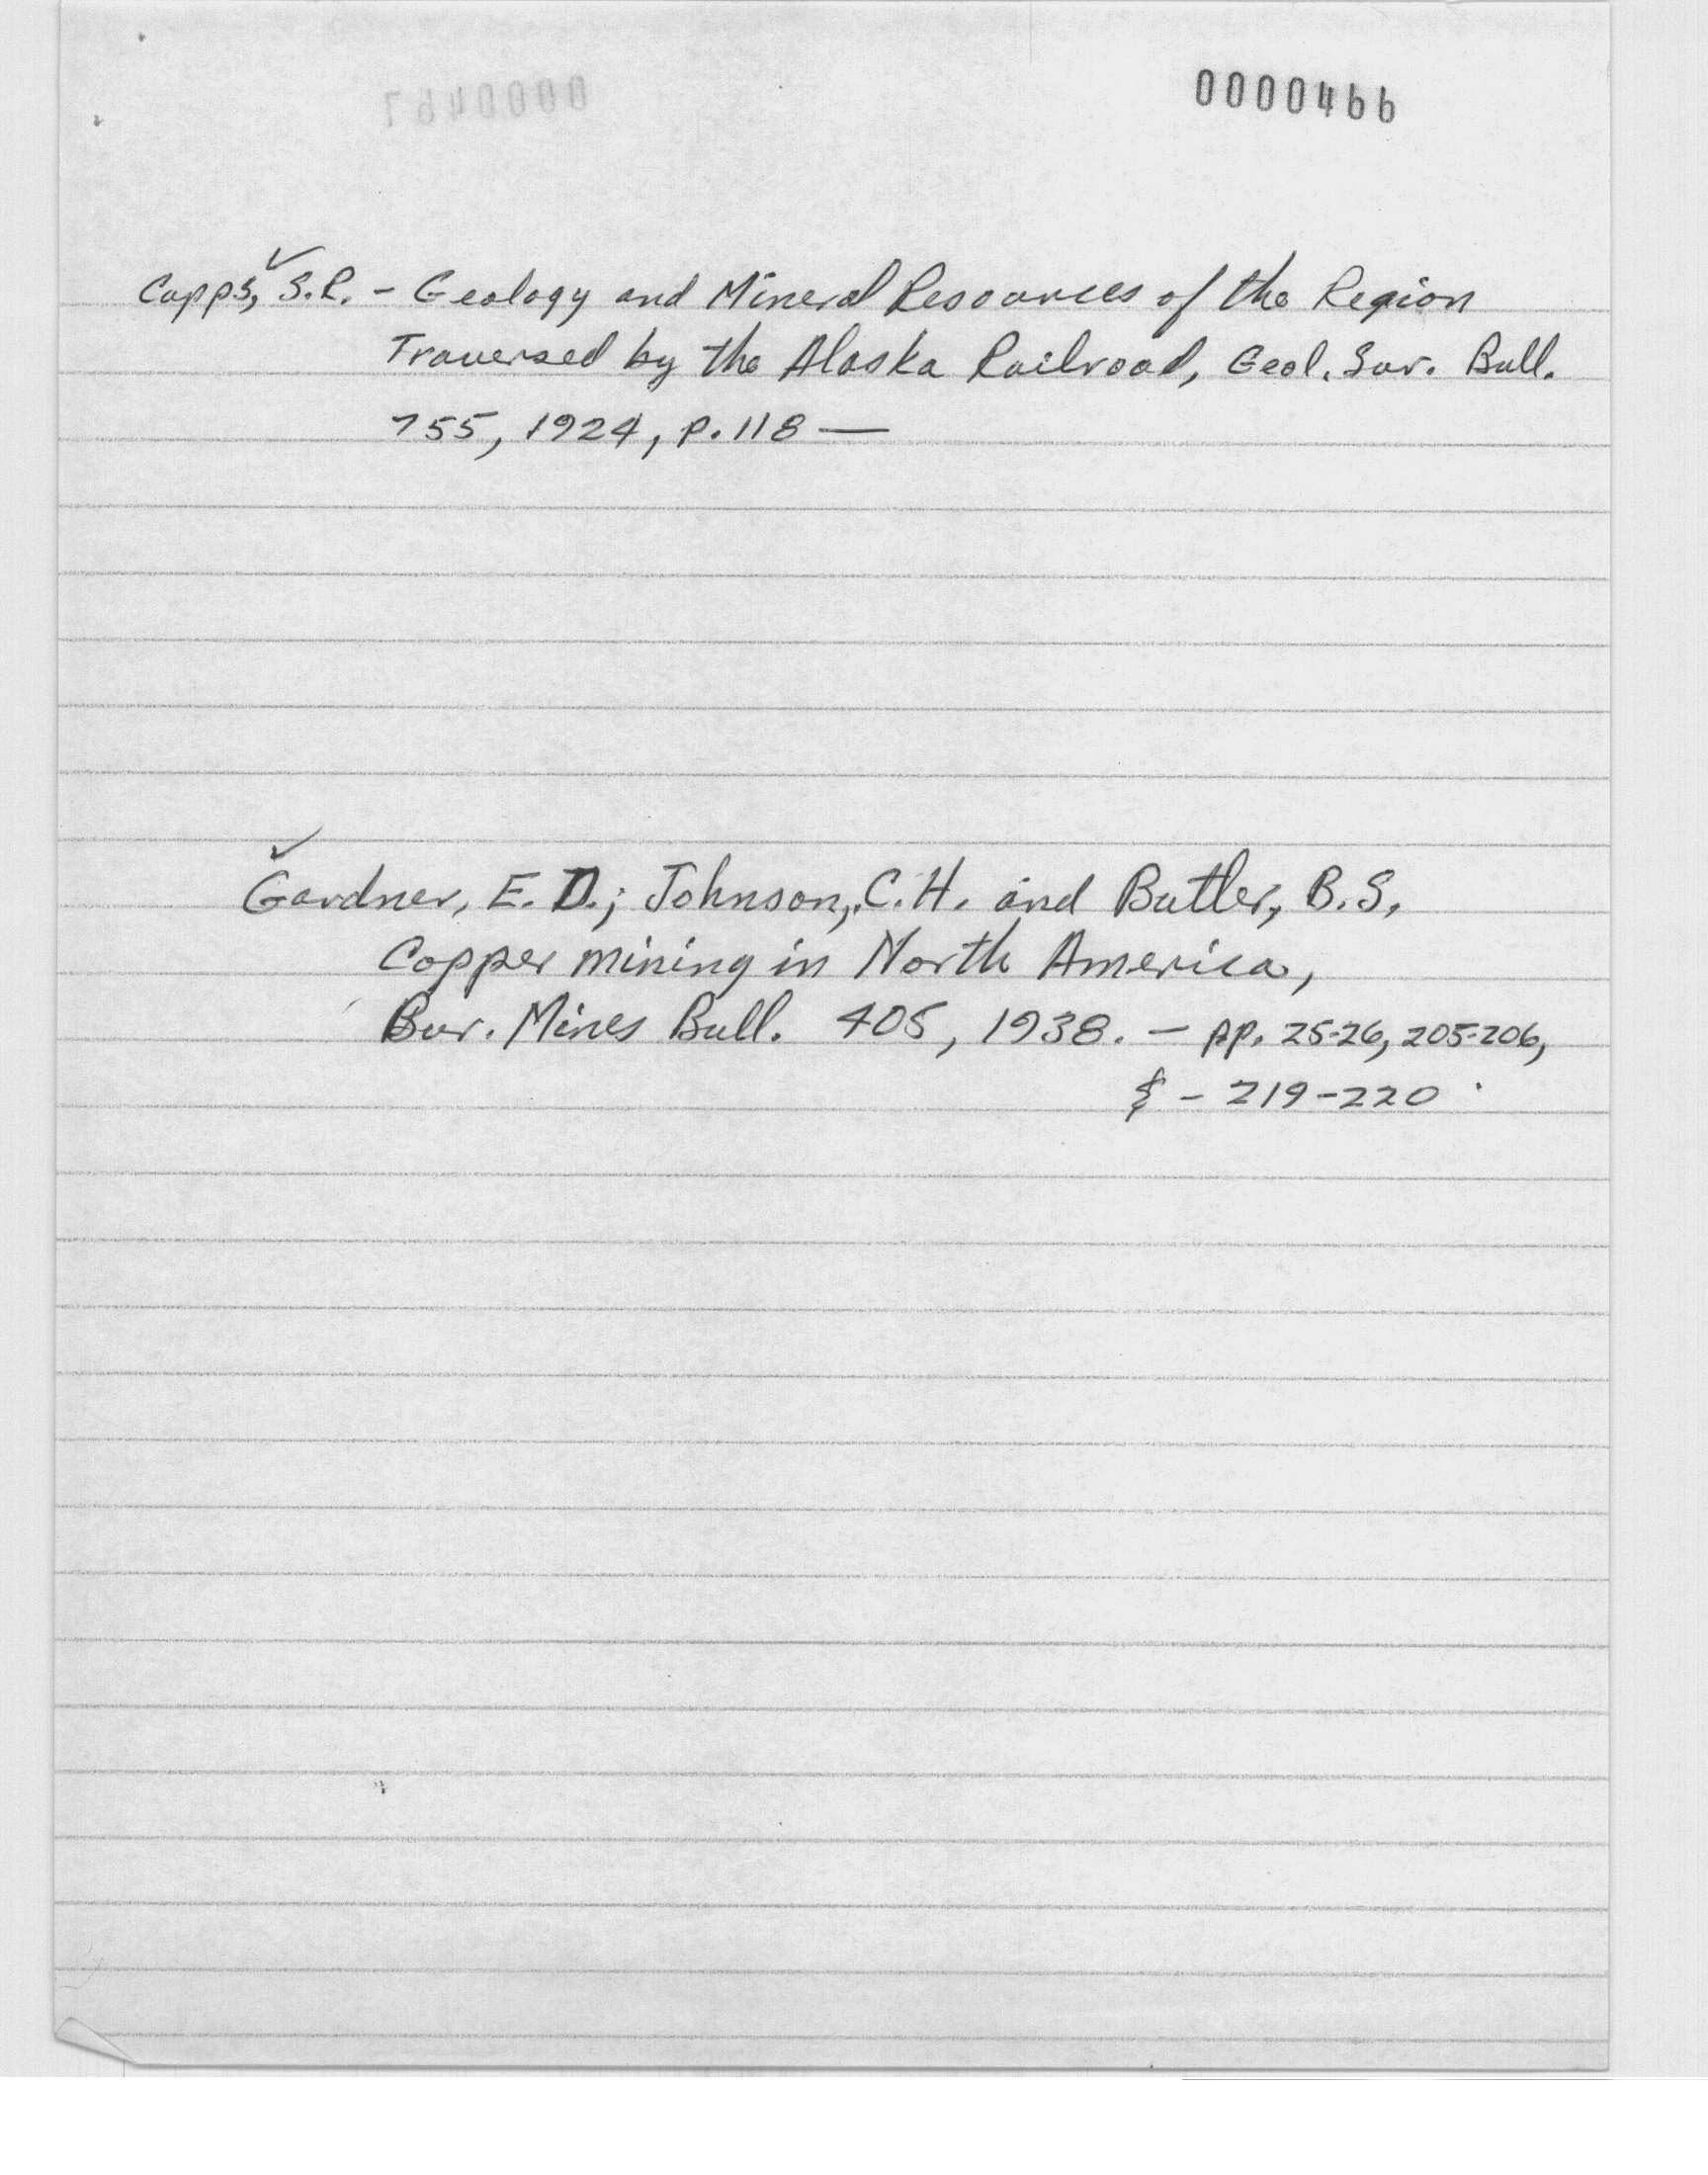 0000466
Capps, S.R. - Geology and Mineral Resources of the Region
Traversed by the Alaska Railroad, Geol. Sur. Bull.
755, 1924, p. 118 —
Gardner, E. D.; Johnson, C. H. and Butler, B. S,
Copper mining in North America,
Bur. Mines Bull. 405, 1938. — pp. 25-26, 205-206,
& - 219-220